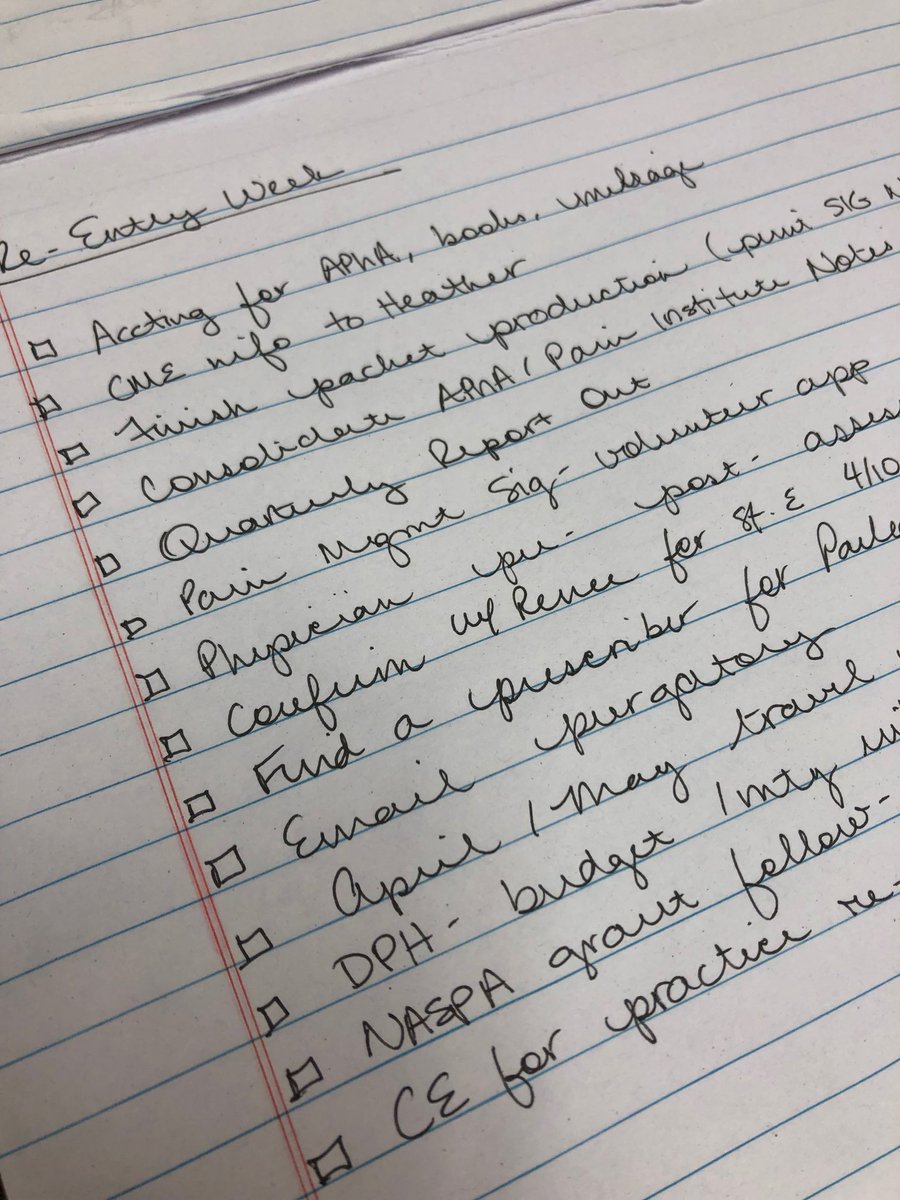 Re-Entry Week
Accting for APhA, books, mileage
CME info to Heather
Finish packet production (print SIG
Consolidate APhA/Pain Institute Notes
Quarterly Report Out
Pain Mgmt Sig- volunteer app
Physician pre- post- assess
Confirm w/ Renee for St. E 4/10
Find a prescriber for
Email purgatory
April/May travel
DPH- budget/mty
NASPA grant follow-
CE for practice re-